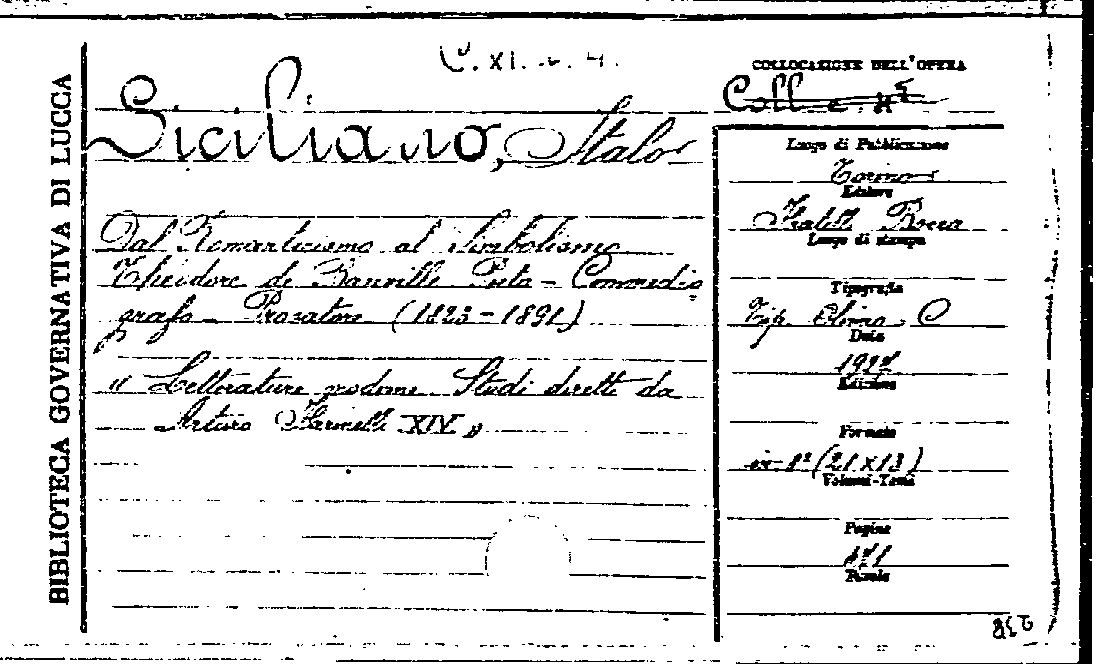 BIBLIOTECA GOVERNATIVA DI LUCCA
C. XI. 4.
COLLOCAZIONE DELL'OPERA
Coll.
Siciliano, Italo
Dal Romanticismo al Simbolismo
Théodore de Banville Poeta - Commedio
grafo - Prosatore (1823 - 1891)
" Letterature moderne. Studi diretti da
Arturo Farinelli XIV "
Luogo di Pubblicazione
Torino
Editore
Fratelli Bocca
Luogo di stampa
Tipografia
Tip. C
Data
Edizione
Formato
in 8° (21 x 13)
Volumi-Tomi
Pagine
Tavole